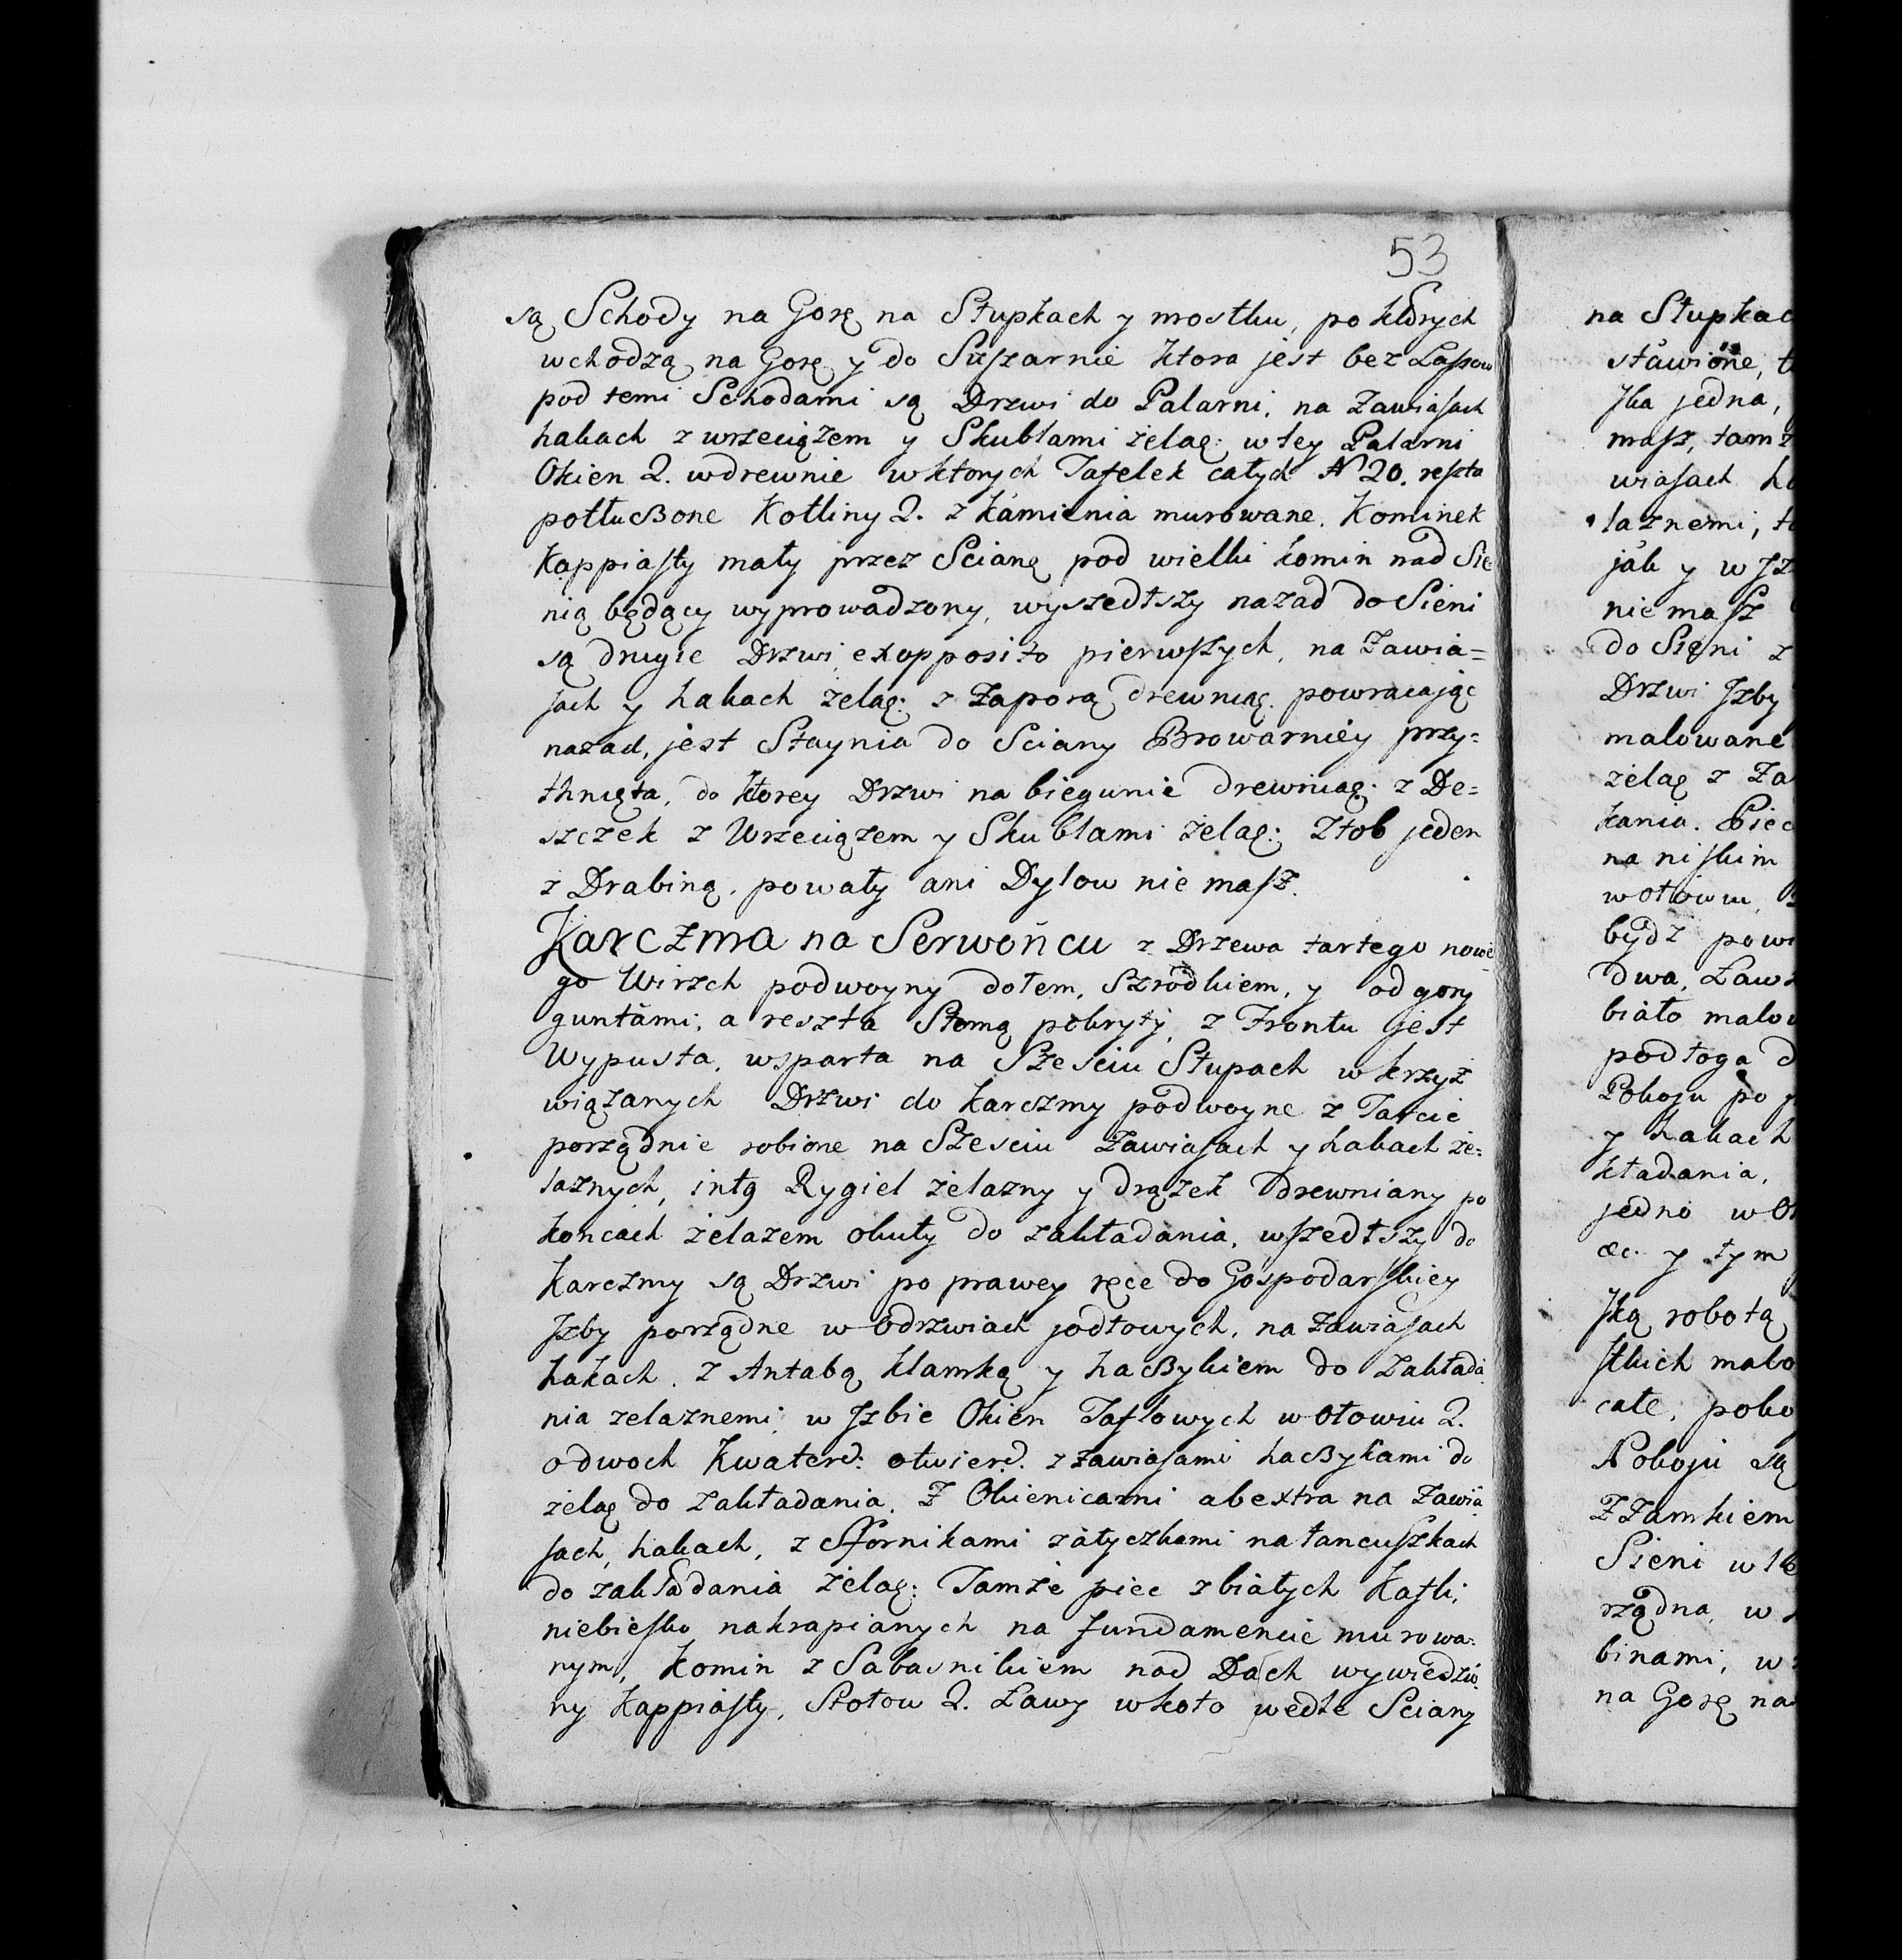 53
są Schody na Gorę na Słupkach y mostku, po ktorych
wchodzą na Gorę y do Suszarnie ktora jest bez Lassow
pod temi Schodami są Drzwi do Palarni, na Zawiasach
hakach z wrzeciążem y Skublami żelaz: w tey Palarni
Okien 2. w drewnie w ktorych Tafelek całych N 20. reszta
potłuczone Kotliny 2. z kamienia murowane. Kominek
Kappiasty mały przez Scianę pod wielki komin nad Sie
nią będący wyprowadzony, wyszedłszy nazad do Sieni
są drugie Drzwi exopposito pierwszych, na Zawia=
sach y hakach żelaz: z Zaporą drewnią. powracając
nazad, jest Staynia do Sciany Browarniey przy=
tknięta, do ktorey Drzwi na biegunie drewnią: z De=
szczek z Wrzeciążem y Skublami żelaz: Złob jeden
z Drabiną, powały ani Dylow nie masz.
Karczma na Serwońcu z Drzewa tartego nowe
go Wirzch podwoyny dołem, Szrodkiem, y od gory
guntami, a reszta Słomą pokryty, z Frontu jest
Wypusta, wsparta na Sześciu Słupach w krzyż
wiązanych Drzwi do karczmy podwoyne z Tarcic
porządnie robione na Sześciu Zawiasach y hakach że=
laznych, intg Rygiel żelazny y drążek drewniany po
koncach żelazem okuty do zakładania, wszedłszy do
Karczmy są Drzwi po prawey ręce do Gospodarskiey
Jzby porządne w Odrzwiach jodłowych, na Zawiasach
hakach. z Antabą klamką y haczykiem do Zakłada
nia zelaznemi, w Jzbie Okien Taflowych w ołowiu 2.
o dwoch Kwaterd: otwierd. z zawiasami haczykami do
żelaz do zakładania. Z Okienicami abextra na Zawia
sach, hakach, z Sfornikami zatyczkami na łancuszkach
do zakładania żelaz: Tamże piec z białych kafli,
niebiesko nakrapianych na fundamencie murowa:
nym, komin z Sabasnikiem nad Dach wywiedzio
ny Kappiasty, Stołow 2. Ławy wkoło wedle Sciany
na Słupkac
stawione, t
ska jedna,
masz, tamż
wiasach ha
laznemi, t
jak y w Jz
niemasz
do Sieni z
Drzwi Jzby
malowane
żelaz z Za
kania. Piec
na niskim
w ołowiu,
bydz pow
dwa, Ław
biało malow
podłoga d
Pokoju po
y hakach
kładania,
jedno w O
&c. y tym
ską robotą
skich malo
całe, poko
Pokoju są
Z zamkiem
Sieni w te
rządna, w
binami, w
na Gorę na